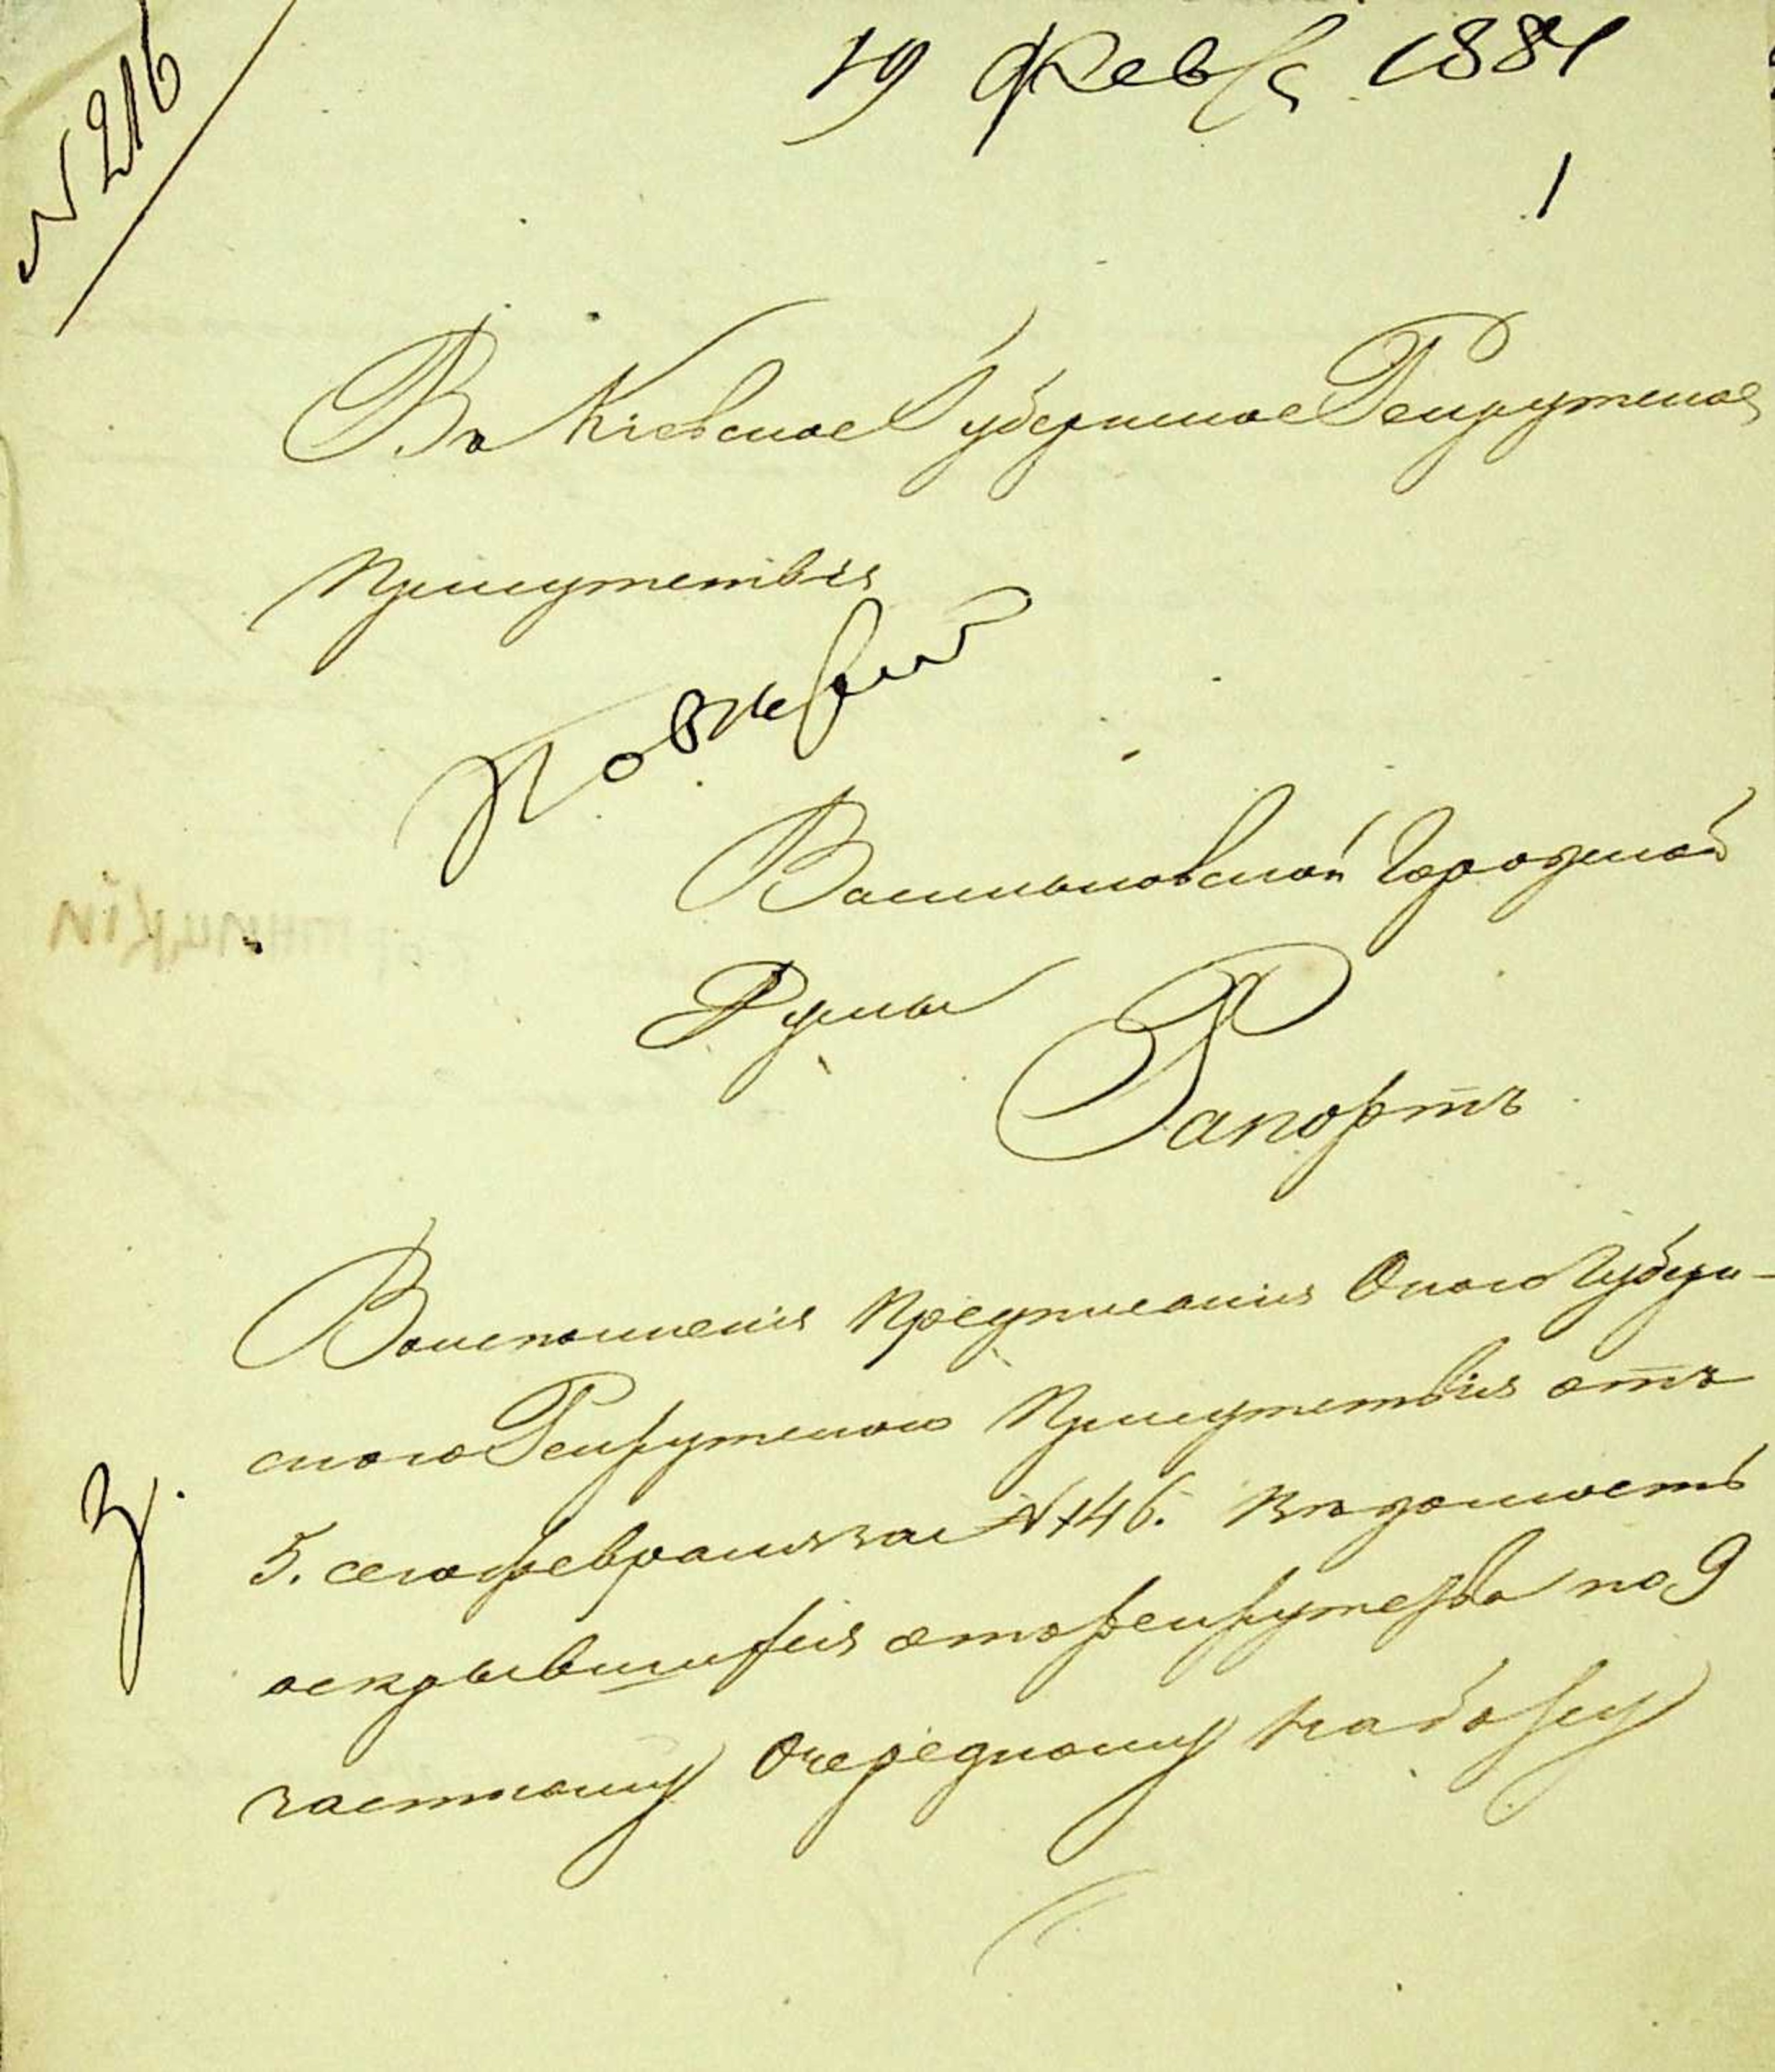 № 216
19 Февр 1851
1
Въ Кіевское Губернское Рекрутское
Присутствіе
Васильковской Городской
Думы
Рапортъ
Воисполненіе Предписанія Онаго Губерн-
скаго Рекрутскаго Присутствія отъ
3.
5. сего февраля за № 146. Вѣдомость
оскрывшихся отъ рекрутства по 9
частному Очередному набору